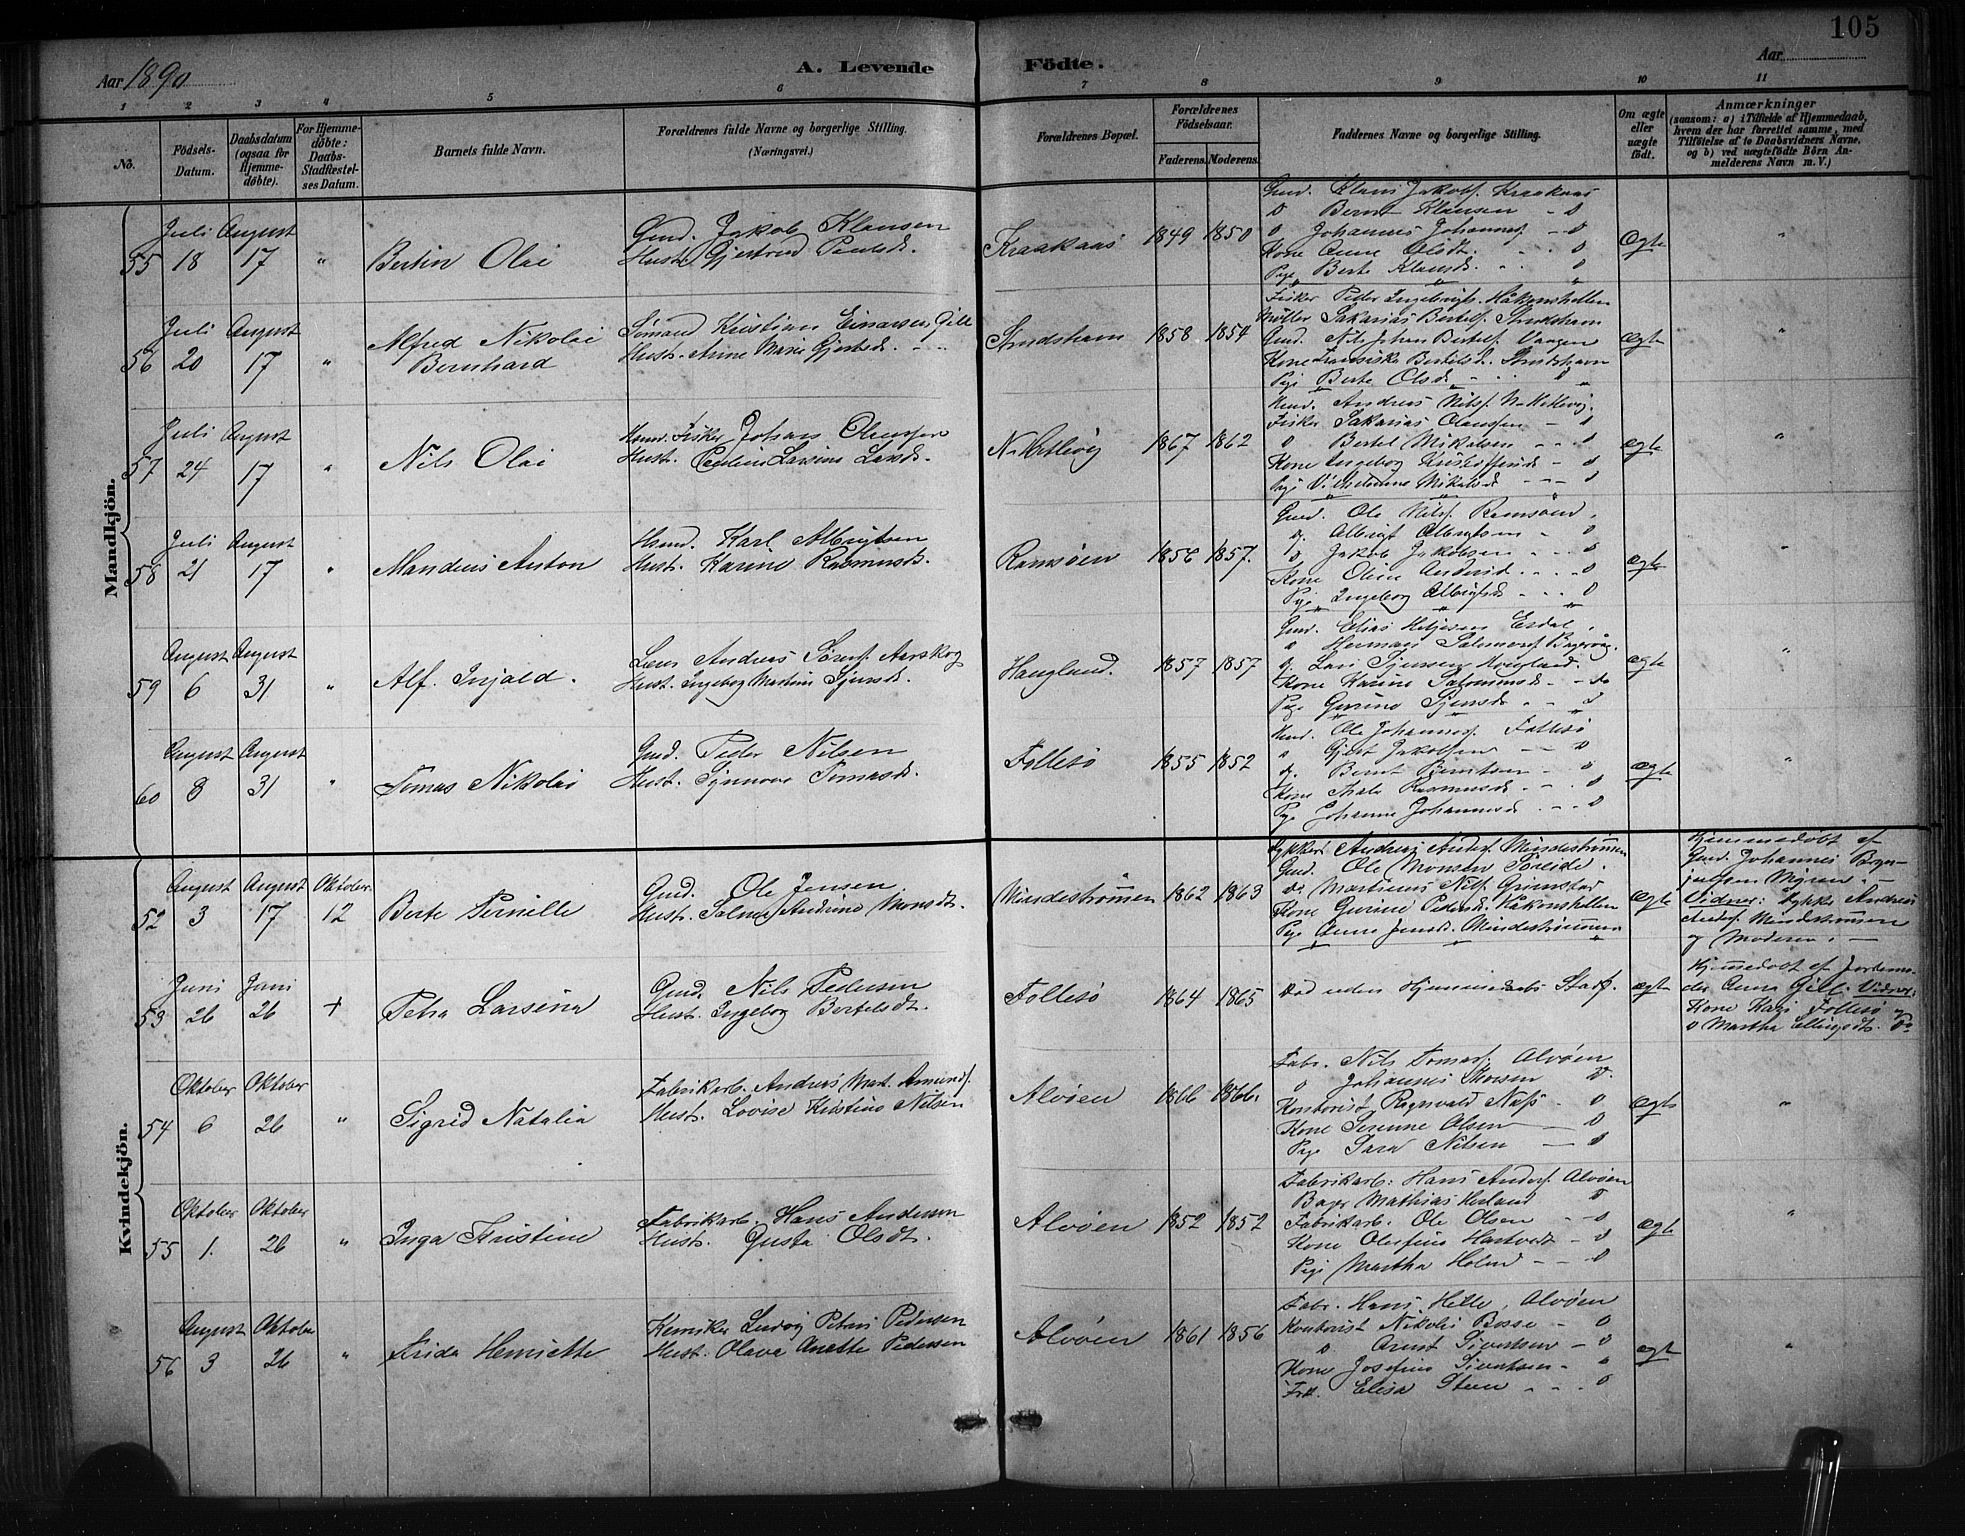 105
Aar 1890
A. Levende
Födte.
Aar
1 2 3 4 5 6 7 8 9 10 11
No.
Födsels-Datum.
Daabsdatum (ogsaa for Hjemmedöbte).
For Hjemmedöbte: Daabs-Stadfæstelses Datum.
Barnets fulde Navn.
Forældrenes fulde Navne og borgerlige Stilling. (Næringsvei.)
Forældrenes Bopæl.
Forældrenes Födselsaar.
Faderens. Moderens.
Faddernes Navne og borgerlige Stilling.
Om ægte eller uægte födt.
Anmærkninger (saasom: a) i Tilfælde af Hjemmedaab, hvem der har forrettet samme, med Tilföielse af to Daabsvidners Navne, og b) ved uægtefödte Börn Anmelderens Navn m. V.)
Mandkjön.
55
Juli 18
August 17
"
Bertin Olai
Gmd. Jakob Klausen
Hust. Gjertrud Paulsd.
Kraakaas
1849 1850
Gmd. Klaus Jakobs. Kraakaas
D Bernt Klausen - D
D Johannes Johannes. - D
Kone Anne Olsdt. - D
Pige Berte Klausd. - D
Ægte
"
56
Juli 20
August 17
"
Alfred Nikolai
Bernhard
Sömand Kristian Einarsen, Gill
Hust. Anne Marie Gjertsd. - -
1858 1854
Fisker Peder Ingebrigts. Håkonshellen
Møller Sakarias Bertels.
Gmd. Nils Johan Bertels. Vaagen
Kone Fransiska Bertelsd.
Pige Berte Olsd. - D
Ægte
"
57
Juli 24
August 17
"
Nils Olai
Fisker Johan Olaussen
Hust. Paulin Larsine Larsd.
1867 1862
Andreas Nils.
Fisker Sakarias Olaussen - D
D Bertel Mikalsen - D
Kone Ingeborg - D
Pige Vilhelmine Mikalsd. - D
Ægte
"
58
Juli 21
August 17
"
Mandius Anton
Karl Albrigtsen
Hust. Karine Rasmusd.
Ramsöen
1856 1857.
Gmd. Ole Nils. Ramsöen.
d. Albrigt Albrigtsen - D
D Jakob Jakobsen - D
Kone Oline Andersd. - D
Pige Ingeborg Albrigtsd. - D
Ægte
"
59
August 6
August 31
"
Alf. Injald.
Andreas Sörens. Aarskog
Hust. Ingeborg Martine Sjursd.
Haugland.
1857 1857
Gmd. Elias
D Herman Salomons.
d. Lars Sjursen Haugland.
Kone Karine Salomonsd. - do
Pige Gurine Sjursd. - D
Ægte
"
60
August 8
August 31
"
Tomas Nikolai
Gmd. Peder Nilsen
Hust. Synnove Tomasd.
Follesö
1855 1852
Ole Johannes. Follesö
D Gjert Jakobsen - D
d. Bernt Berntsen - D
Kone Rasmusd. - D
Pige Johanne Johannesd. - D
Ægte
"
Kvindekjön.
52
August 3
August 17
Oktober 12
Berte Pernille
Gmd. Ole Jensen
Hust. Salmine Andrine Monsdt.
Mindeströmmen
1862 1863
Andreas Anders. Mindeströmmen
Gmd. Ole Monsen Söreide.
do Martinus Nils. Grimstad
Kone Gurine Pedersd. Håkonshellen
Pige Anne Jensd. Mindeströmmen
Ægte
Hjemmedöbt af
Gmd. Johannes
Myren. -
Vidner: Andreas
Anders. Mindeströmmen
og Moderen. -
53
Juni 26
Juni 26
+
Petra Larsine
Gmd. Nils Pedersen
Hust. Ingeborg Bertelsdt.
Follesö
1864 1865
Död uden Hjemmedaabs Stadf.
Ægte
Hjemmedöbt af Jordemo-
der Anna Gill. Vidner:
Kone Kari Follesö og
D Martha Ellingsdt. Do
54
Oktober 6
Oktober 26
"
Sigrid Natalia
Fabrikarb. Andreas Mart. Amunds.
Hust. Lovise Kirstine Nilsen
Alvöen
1866 1866.
Fabr. Nils Tomas. Alvöen
D Johannes D
Kontorist Ragnvald - D
Kone Serenne Olsen - D
Pige Sara Nilsen - D
Ægte
"
55
Oktober 1.
Oktober 26
"
Inga Kristine
Fabrikarb. Hans Andersen
Hust. Gusta Olsdt.
Alvöen
1852 1852
Fabrikarb: Hans Anders. Alvöen
Bager Mathias Herland D
Fabrikarb: Ole Olsen - D
Kone Olufine Hartvedt - D
Pige Martha Holm - D
Ægte
"
56
August 3
Oktober 26
"
Frida Henriette
Kemiker Ludvig Petrus Pedersen
Hust. Olava Anette Pedersen
Alvöen
1861 1856
Fabr. Hans Helle, Alvöen
Kontorist Nikolai Bosse - D
D Arent Sivertsen - D
Kone Josefine Sivertsen - D
Frk. Elisa Steen - D
ægte
"